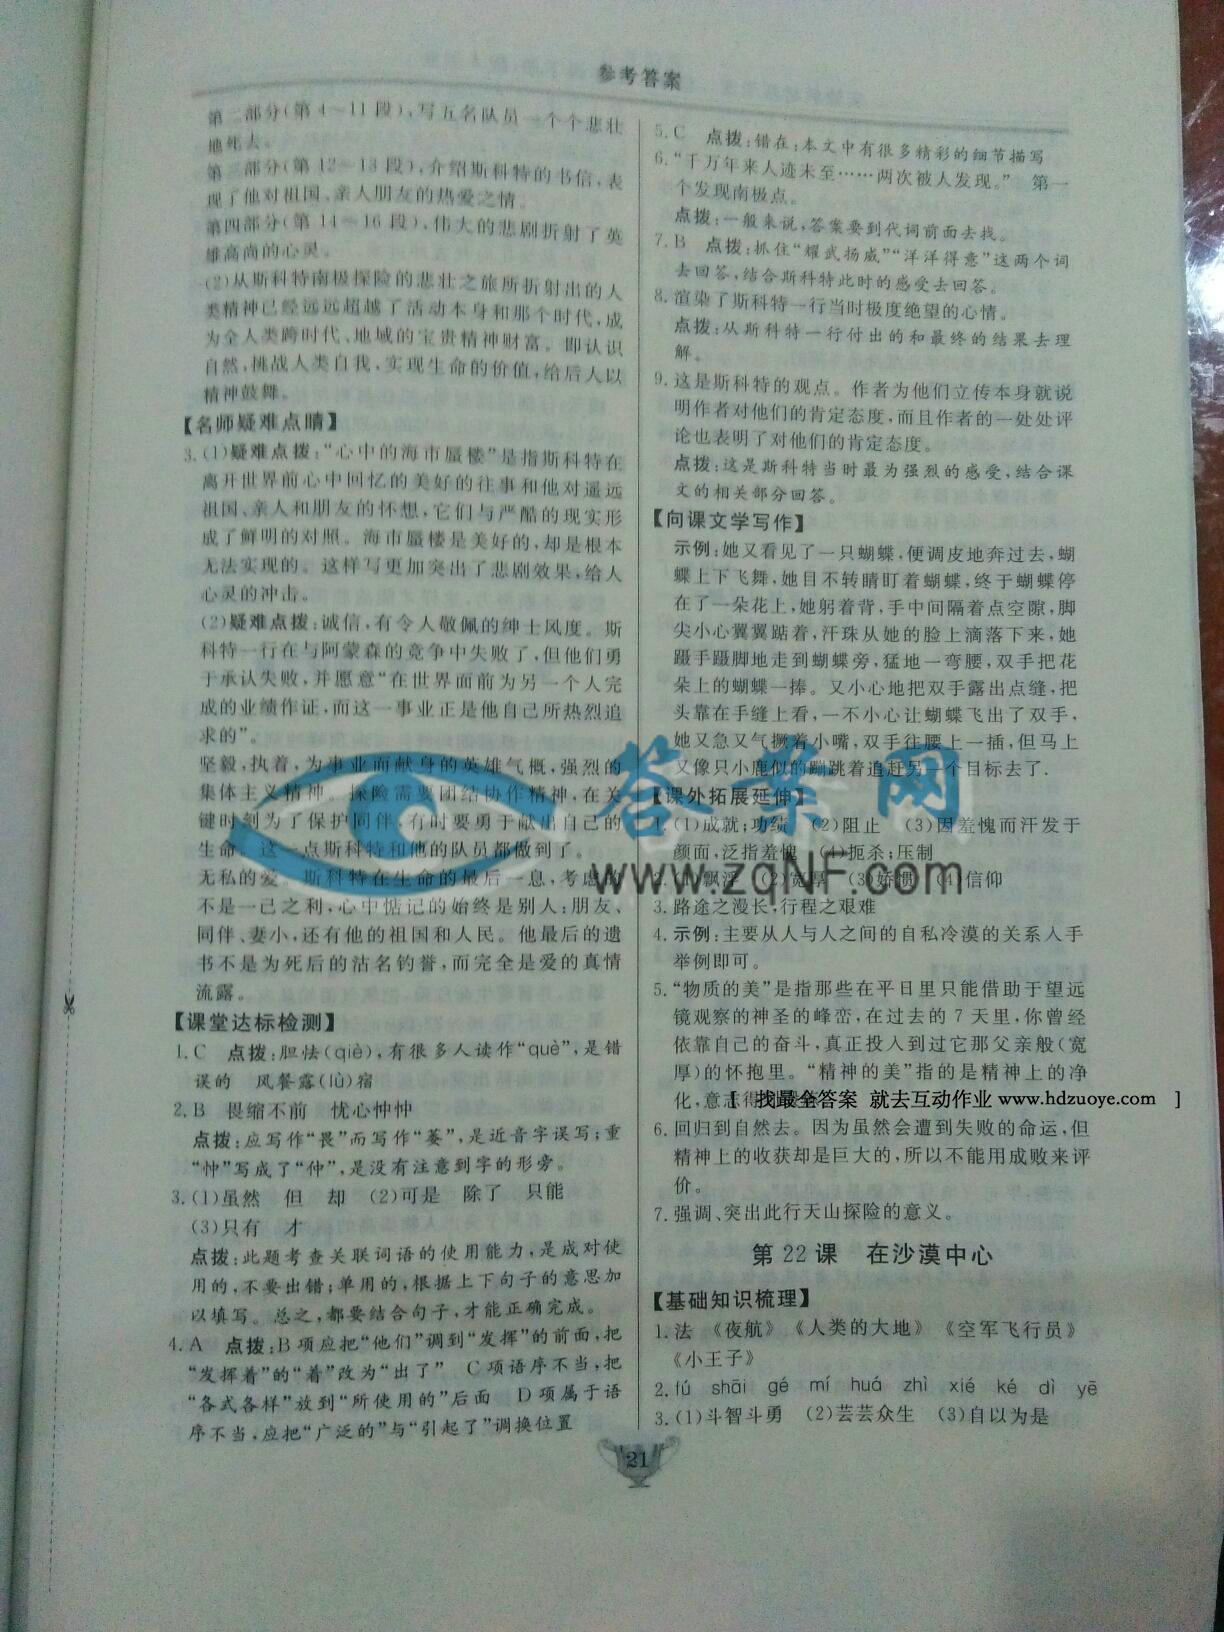 参考答案
第二部分(第4～11段),写五名队员一个个悲壮
地死去。
第三部分(第12～13段),介绍斯科特的书信,表
现了他对祖国、亲人朋友的热爱之情。
第四部分(第14～16段),伟大的悲剧折射了英
雄高尚的心灵。
(2)从斯科特南极探险的悲壮之旅所折射出的人
类精神已经远远超越了活动本身和那个时代,成
为全人类跨时代、地域的宝贵精神财富。即认识
自然,挑战人类自我,实现生命的价值,给后人以
精神鼓舞。
【名师疑难点睛】
3.(1)疑难点拨:“心中的海市蜃楼”是指斯科特在
离开世界前心中回忆的美好的往事和他对遥远
祖国、亲人和朋友的怀想,它们与严酷的现实形
成了鲜明的对照。海市蜃楼是美好的,却是根本
无法实现的。这样写更加突出了悲剧效果,给人
心灵的冲击。
(2)疑难点拨:诚信,有令人敬佩的绅士风度。斯
科特一行在与阿蒙森的竞争中失败了,但他们勇
于承认失败,并愿意“在世界面前为另一个人完
成的业绩作证,而这一事业正是他自己所热烈追
求的”。
坚毅,执着,为事业而献身的英雄气概,强烈的
集体主义精神。探险需要团结协作精神,在关
键时刻为了保护同伴,有时要勇于献出自己的
生命。这一点斯科特和他的队员都做到了。
无私的爱。斯科特在生命的最后一息,考虑的
不是一己之利,心中惦记的始终是别人:朋友、
同伴、妻小,还有他的祖国和人民。他最后的遗
书不是为死后的沽名钓誉,而完全是爱的真情
流露。
【课堂达标检测】
1.C 点拨:胆怯(qiè),有很多人读作“què”,是错
误的 风餐露(lù)宿
2.B 畏缩不前 忧心忡忡
点拨:应写作“畏”而写作“萎”,是近音字误写;重
“忡”写成了“仲”,是没有注意到字的形旁。
3.(1)虽然 但 却 (2)可是 除了 只能
(3)只有 才
点拨:此题考查关联词语的使用能力,是成对使
用的,不要出错;单用的,根据上下句子的意思加
以填写。总之,都要结合句子,才能正确完成。
4.A 点拨:B项应把“他们”调到“发挥”的前面,把
“发挥着”的“着”改为“出了” C项语序不当,把
“各式各样”放到“所使用的”后面 D项属于语
序不当,应把“广泛的”与“引起了”调换位置
5.C 点拨:错在:本文中有很多精彩的细节描写
6.“千万年来人迹未至……两次被人发现。” 第一
个发现南极点。
点拨:一般来说,答案要到代词前面去找。
7.B 点拨:抓住“耀武扬威”“洋洋得意”这两个词
去回答,结合斯科特此时的感受去回答。
8.渲染了斯科特一行当时极度绝望的心情。
点拨:从斯科特一行付出的和最终的结果去理
解。
9.这是斯科特的观点。作者为他们立传本身就说
明作者对他们的肯定态度,而且作者的一处处评
论也表明了对他们的肯定态度。
点拨:这是斯科特当时最为强烈的感受,结合课
文的相关部分回答。
【向课文学写作】
示例:她又看见了一只蝴蝶,便调皮地奔过去,蝴
蝶上下飞舞,她目不转睛盯着蝴蝶,终于蝴蝶停
在了一朵花上,她躬着背,手中间隔着点空隙,脚
尖小心翼翼踮着,汗珠从她的脸上滴落下来,她
蹑手蹑脚地走到蝴蝶旁,猛地一弯腰,双手把花
朵上的蝴蝶一捧。又小心地把双手露出点缝,把
头靠在手缝上看,一不小心让蝴蝶飞出了双手,
她又急又气撅着小嘴,双手往腰上一插,但马上
又像只小鹿似的蹦跳着追赶另一个目标去了.
【课外拓展延伸】
1.(1)成就;功绩 (2)阻止 (3)因羞愧而汗发于
颜面;泛指羞愧 (4)扼杀;压制
2.(1)飘浮 (2)宽厚 (3)娇惯 (4)信仰
3.路途之漫长,行程之艰难
4.示例:主要从人与人之间的自私冷漠的关系入手
举例即可。
5.“物质的美”是指那些在平日里只能借助于望远
镜观察的神圣的峰峦,在过去的7天里,你曾经
依靠自己的奋斗,真正投入到过它那父亲般(宽
厚)的怀抱里。“精神的美”指的是精神上的净
化,意志得
6.回归到自然去。因为虽然会遭到失败的命运,但
精神上的收获却是巨大的,所以不能用成败来评
价。
7.强调、突出此行天山探险的意义。
第22课 在沙漠中心
【基础知识梳理】
1.法 《夜航》 《人类的大地》 《空军飞行员》
《小王子》
2.fú shāi gé mí huá zhì xié ké dì yē
3.(1)斗智斗勇 (2)芸芸众生 (3)自以为是
21
答案网
www.zqNF.com
[ 找最全答案 就去互动作业 www.hdzuoye.com ]